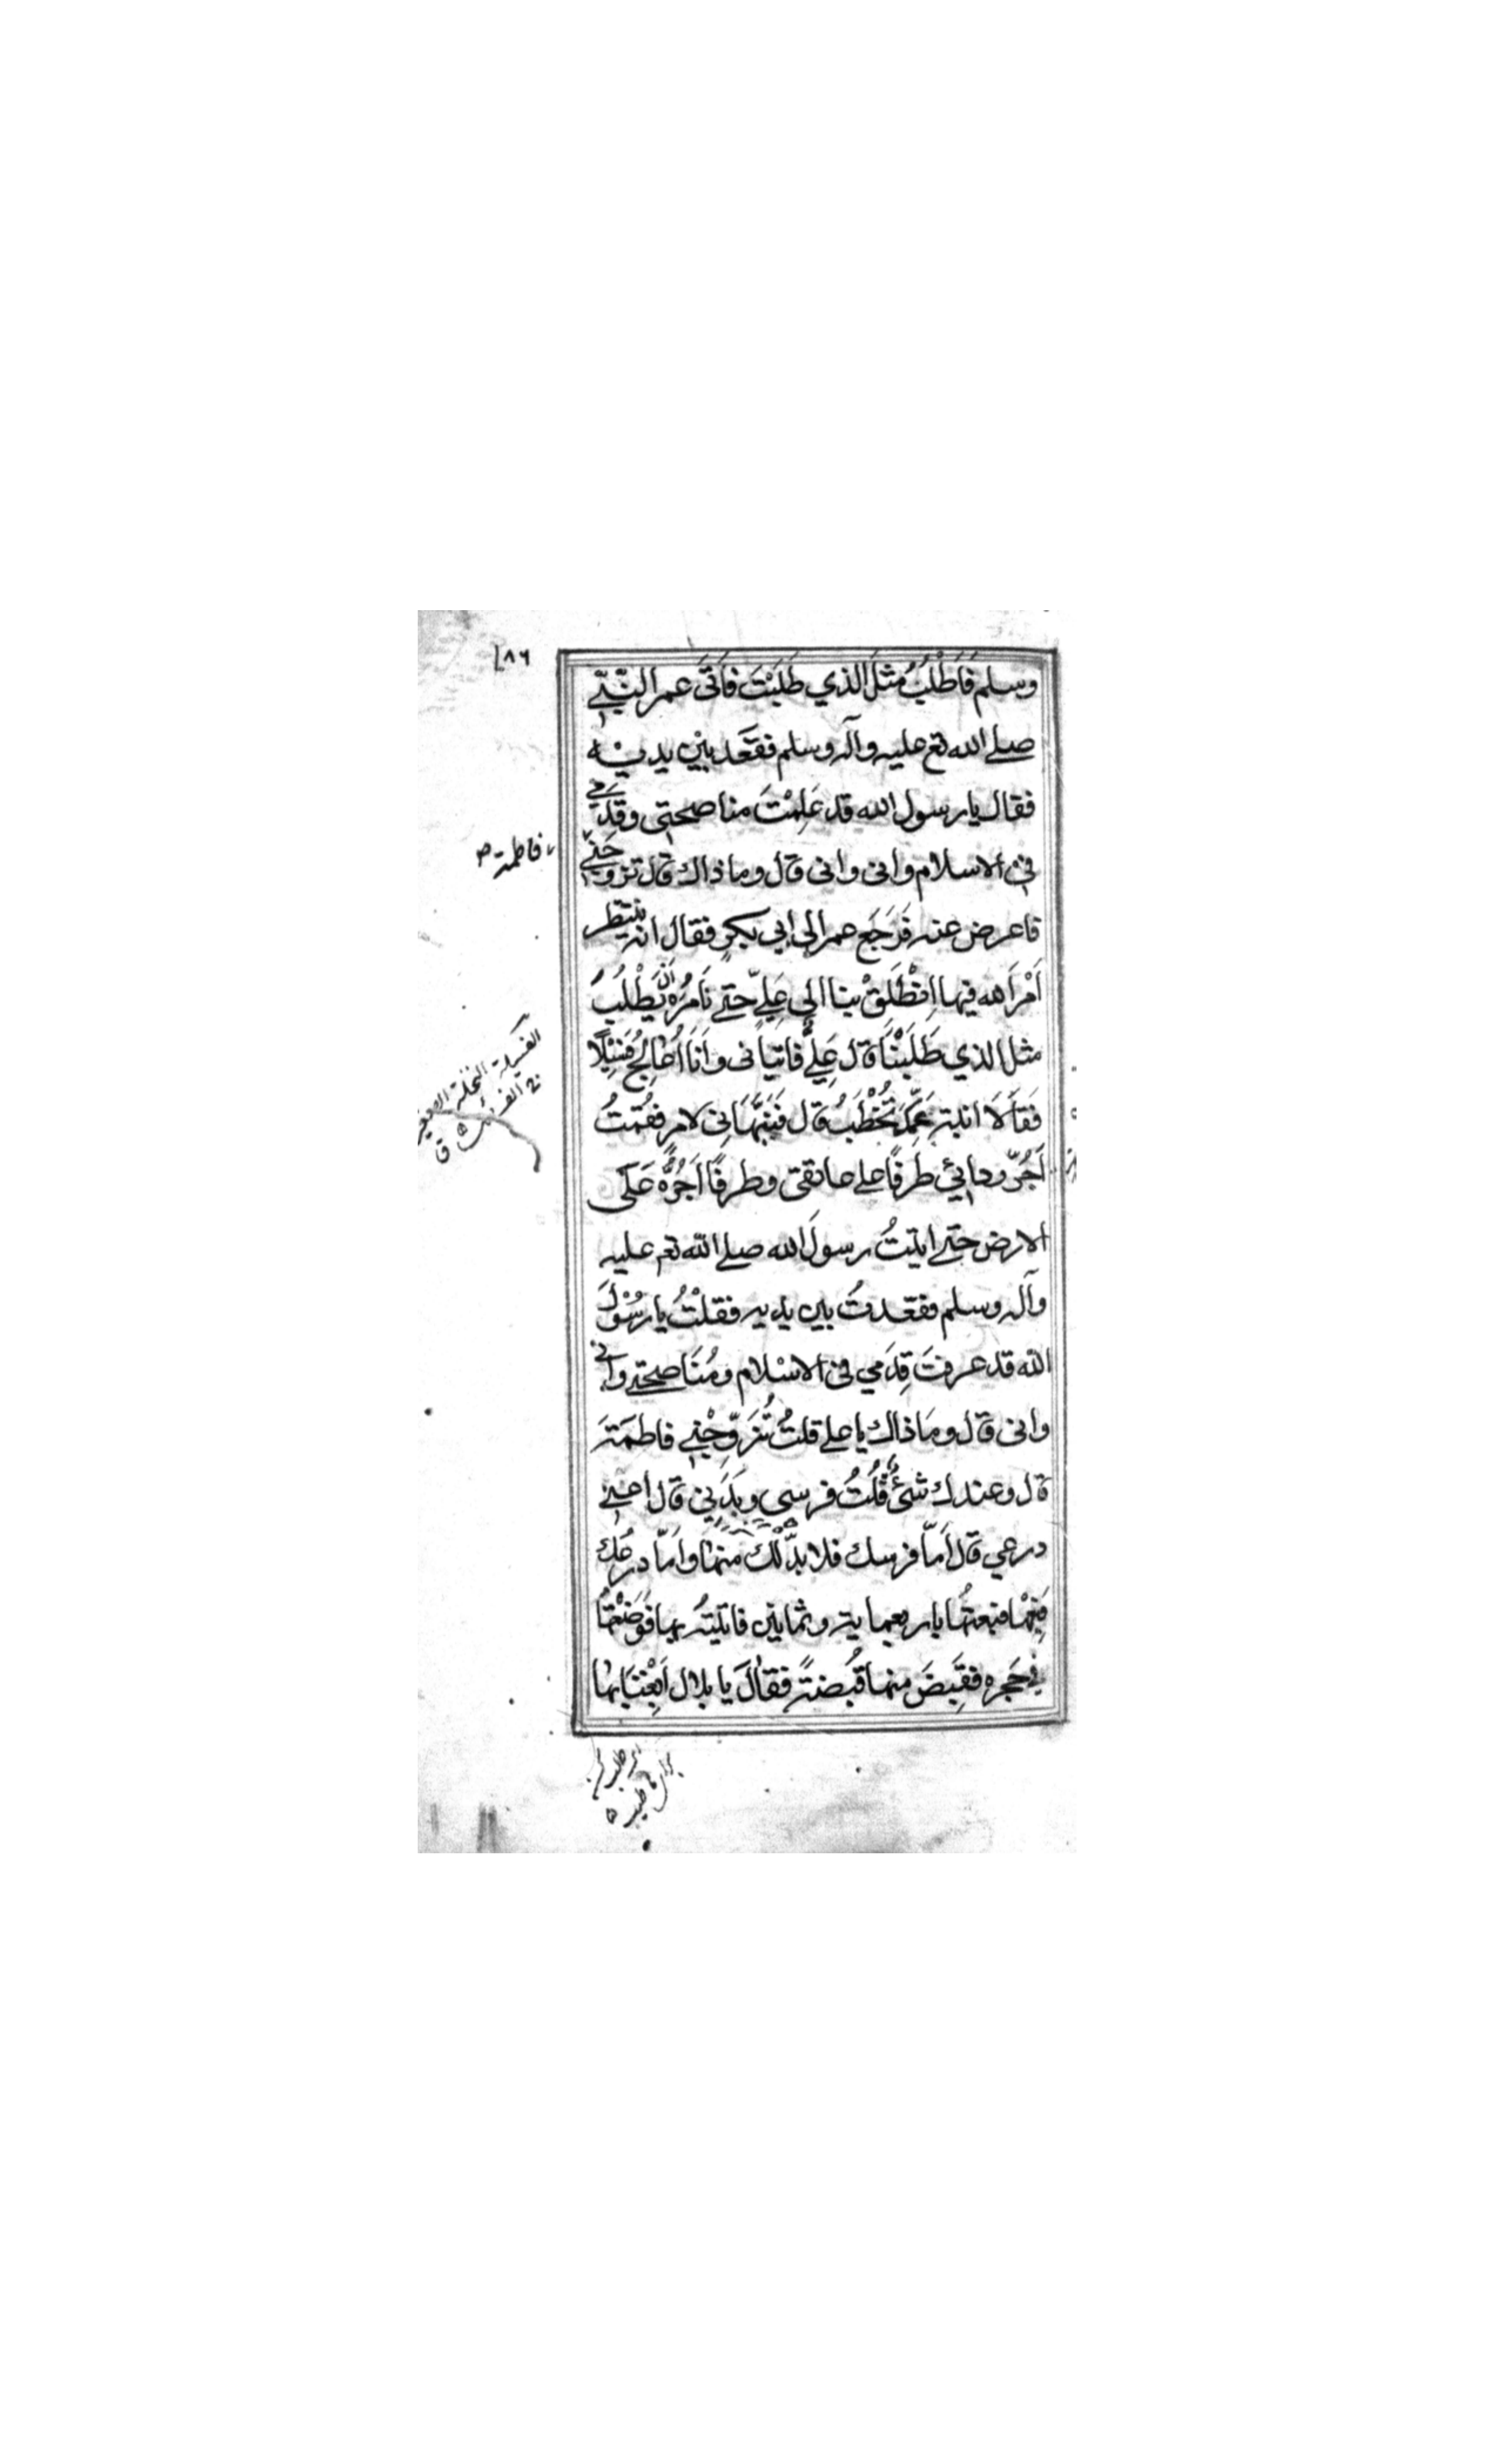 ٨٦
وسلم فَاَطْلُبُ مثلَ الذي طَلَبْتَ فاَتَى عمر النَّبِيّ
صلے الله تع عليه وآله وسلم فقعَد بيْن يديْه
فقال يا رسول الله قد عَلِمْتَ مناصحتي وقِدَمي
في الاسلام واني واني قال وما ذاك قال تزوّجني
فاطمة ص
فاعرض عنه فَرَجَع عمر الى ابي بكرٍ فقال انه ينتظر
اَمْرَ الله فيها اِنْطَلِقْ بنا الى عَلِيّ حتى نَامُرُه اَنْ يَطْلُبَ
مثل الذي طَلَبْنَا قال عَلِيٌّ فاتياَني واَنَا اُعَالِجُ فَسِيْلًا
الفسيلة النخلة
فَقاَلَا ابنة عَمِّكَ تُخْطَبُ قال فَنَبَّهَانِي لامرٍ فقُمتُ
اَجُرّ ردائي طَرفًا على عاتقي وطرفًا اَجُرُّه عَلَى
الارض حتى اتيتُ رسولَ الله صلے الله تع عليه
وآله وسلم فقعدتُ بين يديه فقلْتُ يا رَسُوْلَ
الله قد عرفتَ قِدَمي في الاسْلام ومُنَاصحتي واني
واني قال ومَا ذاك يا علي قلتُ تُزَوِّجْنِي فاطمَةَ
قال وعندك شئٌ قُلْتُ فرسي وبَدَنِي قال اعني
درعي قال اَمّا فرسك فلا بدّ لَكَ منها واَمّا درعُك
فَبِعْهَا فبعتُها باربعماية وثمانين فاتيتُه بها فَوَضَعْتُهَا
في حَجره فقبَضَ منها قُبضةً فقَالَ يا بلال اَبْغِنَا بِهَا